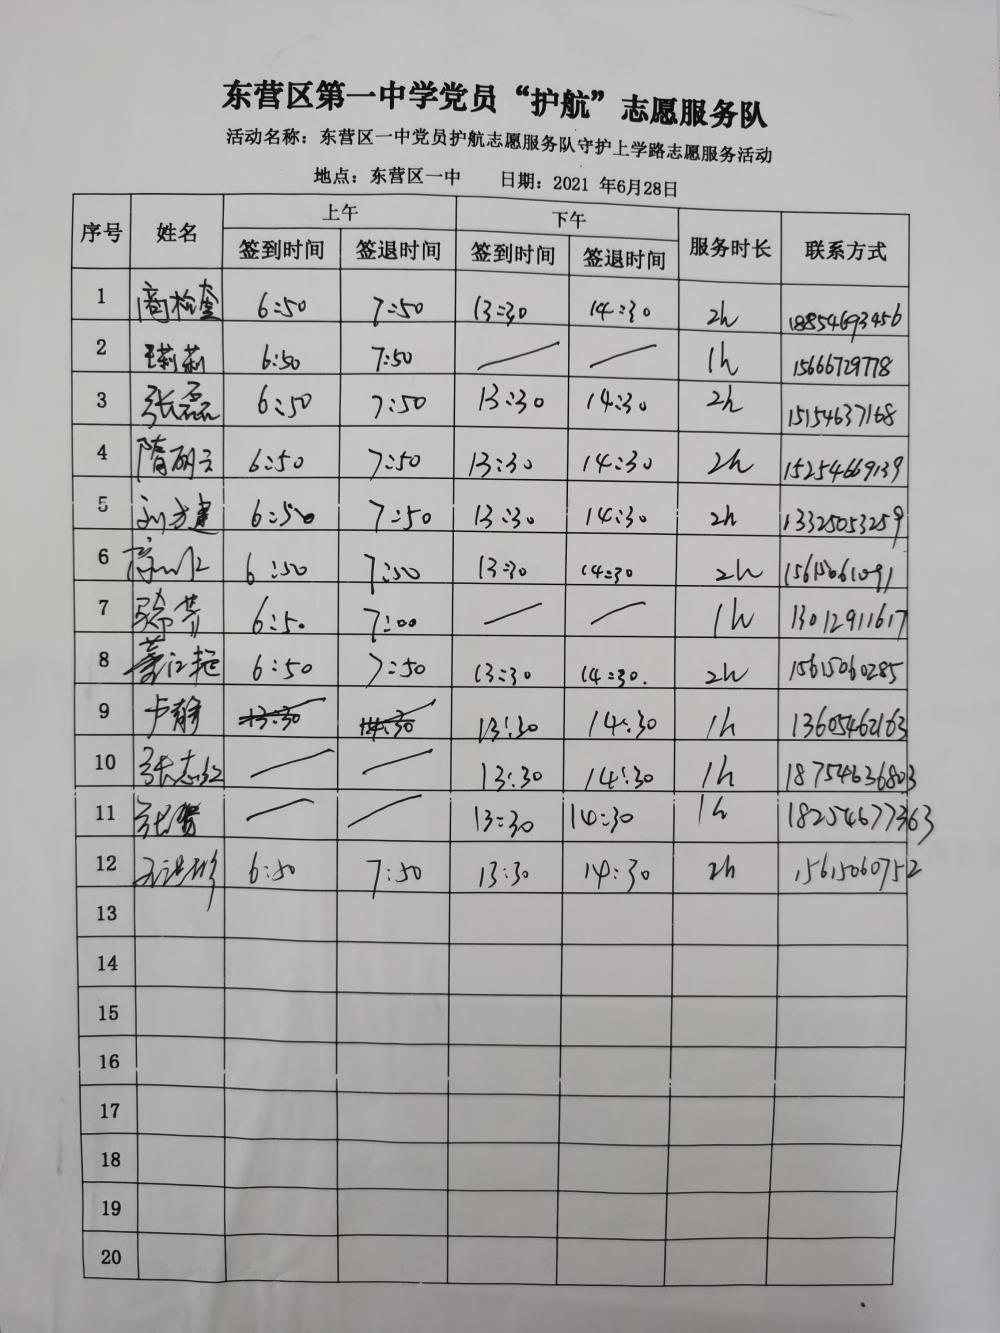 东营区第一中学党员“护航”志愿服务队
活动名称：东营区一中党员护航志愿服务队守护上学路志愿服务活动
地点：东营区一中 日期：2021 年6月28日
序号 姓名 上午 下午 服务时长 联系方式
签到时间 签退时间 签到时间 签退时间
1 商检查 6:50 7:50 13:30 14:30 2h 18854693456
2 王莉莉 6:50 7:50 1h 15666729778
3 张磊 6:50 7:50 13:30 14:30 2h 15154637168
4 6:50 7:50 13:30 14:30 2h 15254669139
5 刘方建 6:50 7:50 13:30 14:30 2h 13325053259
6 6:50 7:50 13:30 14:30 2h 15615061091
7 6:50 7:00 1h 13012911617
8 董江艳 6:50 7:50 13:30 14:30. 2h 15615060285
9 卢静 13:30 14:30 13:30 14:30 1h 13605462163
10 张志红 13:30 14:30 1h 18754636803
11 13:30 14:30 1h 18254677363
12 6:50 7:50 13:30 14:30 2h 15615060752
13
14
15
16
17
18
19
20